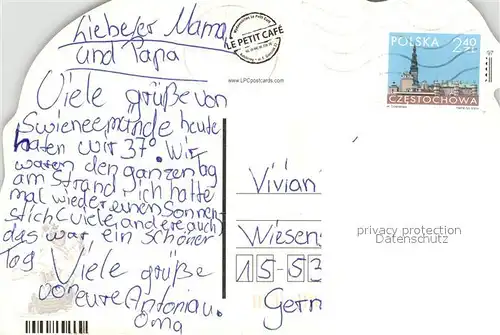 Liebeser Mama
und Papa
Viele grüße von
Swieneemünde heute
haten wir 37° Wir
waren den ganzen Tag
am Strand ich hatte
mal wieder einen Sonnen-
stich (viele andere auch)
das war ein schöner
Tag Viele grüße
von eure Antonia u.
Oma
LE PETIT CAFÉ
www.LPCpostcards.com
POLSKA 2,40 ZŁ
CZĘSTOCHOWA
Vivian
Wiesen
15-53
Germ
privacy protection
Datenschutz